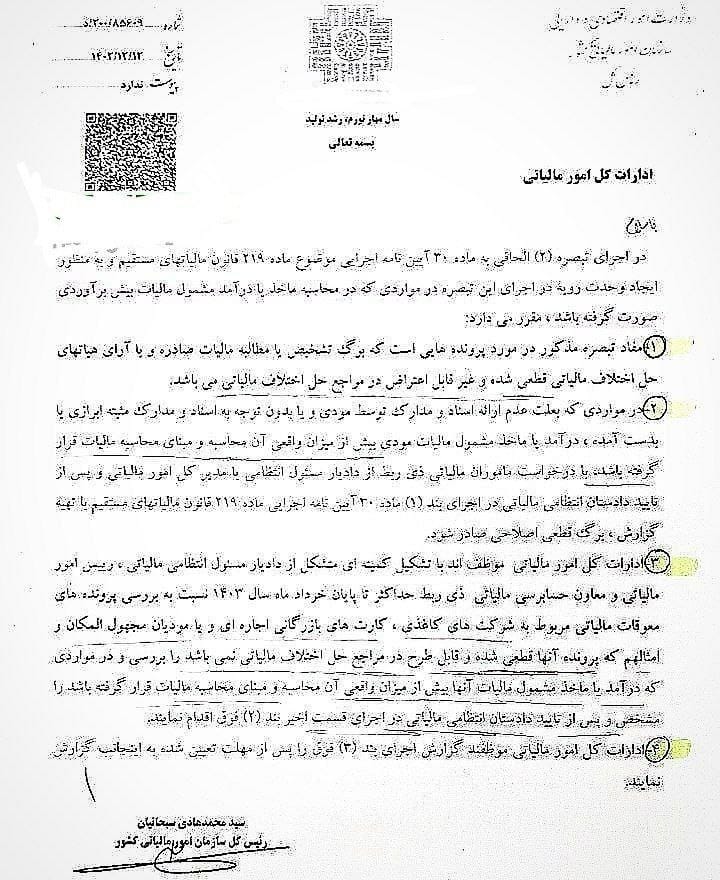 وزارت امور اقتصادی و دارایی
سازمان امور مالیاتی کشور
رئیس کل
شماره ۲۰۰/۸۵۶۰۹/د
تاریخ ۱۴۰۲/۱۲/۱۲
پیوست ندارد
سال مهار تورم، رشد تولید
بسمه تعالی
ادارات کل امور مالیاتی
باسلام
در اجرای تبصره (۲) الحاقی به ماده ۳۰ آیین نامه اجرایی موضوع ماده ۲۱۹ قانون مالیاتهای مستقیم و به منظور
ایجاد وحدت رویه در اجرای این تبصره در مواردی که در محاسبه ماخذ یا درآمد مشمول مالیات بیش برآوردی
صورت گرفته باشد ، مقرر می دارد:
۱- مفاد تبصره مذکور در مورد پرونده هایی است که برگ تشخیص یا مطالبه مالیات صادره و یا آرای هیاتهای
حل اختلاف مالیاتی قطعی شده و غیر قابل اعتراض در مراجع حل اختلاف مالیاتی می باشد.
۲- در مواردی که بعلت عدم ارائه اسناد و مدارک توسط مودی و یا بدون توجه به اسناد و مدارک مثبته ابرازی یا
بدست آمده ، درآمد یا ماخذ مشمول مالیات مودی بیش از میزان واقعی آن محاسبه و مبنای محاسبه مالیات قرار
گرفته باشد، با درخواست ماموران مالیاتی ذی ربط از دادیار مسئول انتظامی یا مدیر کل امور مالیاتی و پس از
تایید دادستان انتظامی مالیاتی در اجرای بند (۱) ماده ۳۰ آیین نامه اجرایی ماده ۲۱۹ قانون مالیاتهای مستقیم با تهیه
گزارش ، برگ قطعی اصلاحی صادر شود.
۳- ادارات کل امور مالیاتی موظف اند با تشکیل کمیته ای متشکل از دادیار مسئول انتظامی مالیاتی ، رییس امور
مالیاتی و معاون حسابرسی مالیاتی ذی ربط حداکثر تا پایان خرداد ماه سال ۱۴۰۳ نسبت به بررسی پرونده های
معوقات مالیاتی مربوط به شرکت های کاغذی ، کارت های بازرگانی اجاره ای و یا مودیان مجهول المکان و
امثالهم که پرونده آنها قطعی شده و قابل طرح در مراجع حل اختلاف مالیاتی نمی باشد را بررسی و در مواردی
که درآمد یا ماخذ مشمول مالیات آنها بیش از میزان واقعی آن محاسبه و مبنای محاسبه مالیات قرار گرفته باشد را
مشخص و پس از تایید دادستان انتظامی مالیاتی در اجرای قسمت اخیر بند (۲) فوق اقدام نمایند.
۴- ادارات کل امور مالیاتی موظفند گزارش اجرای بند (۳) فوق را پس از مهلت تعیین شده به اینجانب گزارش
نمایند.
سید محمدهادی سبحانیان
رئیس کل سازمان امور مالیاتی کشور